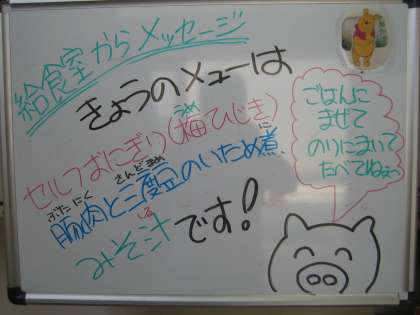 給食室からメッセージ
きょうのメューは
うめ
セルフおにぎり(梅ひじき)
ぶた にく さんど まめ に
豚肉と三度豆のいため煮
しる
みそ汁です!
ごはんに
まぜて
のりにまいて
たべてねぇ~